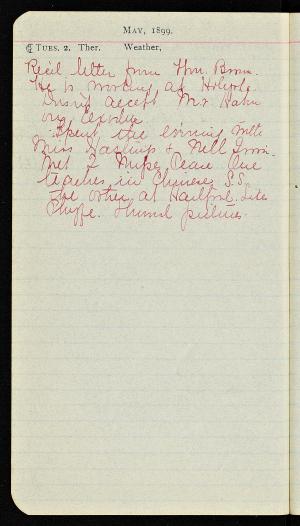 May, 1899.
Tues. 2. Ther. Weather,
Rec'd letter from Wm. Brown.
He is working at Holyoke
Didn't accept Mr. Hahn
Spent the evening with
Miss & Nell
Met 2 Misses Pease One
teaches in Chinese S.S.
The other at Hartford, Lit
Showed pictures.